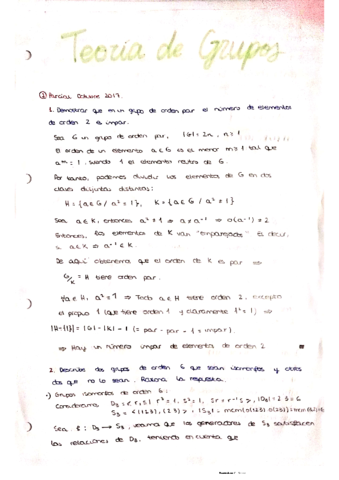 Teoría de Grupos
① Parcial Octubre 2017.
1. Demostrar que en un grupo de orden par el número de elementos
de orden 2 es impar.
Sea G un grupo de orden par, |G| = 2n, n ≥ 1
El orden de un elemento a ∈ G es el menor m ≥ 1 tal que
aᵐ = 1, siendo 1 el elemento neutro de G.
Por tanto, podemos dividir los elementos de G en dos
clases disjuntas distintas:
H = {a ∈ G / a² = 1}, K = {a ∈ G / a² ≠ 1}
Sea a ∈ K, entonces a² ≠ 1 ⇒ a ≠ a⁻¹ ⇒ o(a⁻¹) ≠ 2
Entonces, los elementos de K van "emparejados". Es decir,
a ∈ K ⇒ a⁻¹ ∈ K.
De aquí obtenemos que el orden de K es par ⇒
G/K = H tiene orden par.
∀a ∈ H, a² = 1 ⇒ Todo a ∈ H tiene orden 2, excepto
el propio 1 (que tiene orden 1 y claramente 1² = 1) ⇒
|H-{1}| = |G| - |K| - 1 (= par - par - 1 = impar).
⇒ Hay un número impar de elementos de orden 2
2. Describe dos grupos de orden 6 que sean isomorfos y otros
dos que no lo sean. Razona la respuesta.
·) Grupos isomorfos de orden 6:
Consideramos D₃ = < r, s | r³ = 1, s² = 1, sr = r⁻¹s >, |D₃| = 2·3 = 6
Sea f: D₃ → S₃, veamos que los generadores de S₃ satisfacen
las relaciones de D₃, teniendo en cuenta que